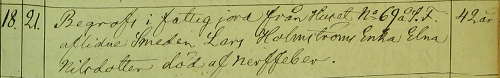 18. 21. Begrofs i fattig jord från Huset No 69 å S. F. 42. år
aflidne Smeden Lars Holmströms Enka Elna
Nilsdotter död af nerffeber.